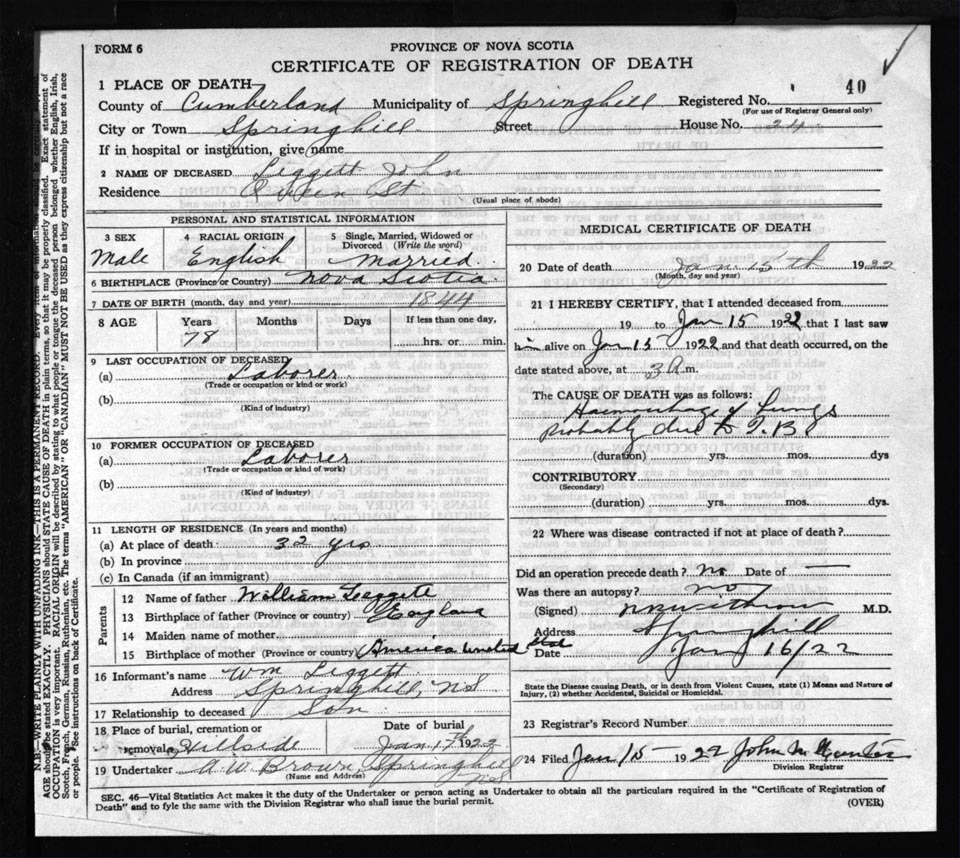 FORM 6
PROVINCE OF NOVA SCOTIA
CERTIFICATE OF REGISTRATION OF DEATH
1 PLACE OF DEATH
40
County of Cumberland Municipality of Springhill Registered No.
(For use of Registrar General only)
City or Town Springhill Street House No. 24
If in hospital or institution, give name
2 NAME OF DECEASED Leggett John
Residence Queen St.
(Usual place of abode)
PERSONAL AND STATISTICAL INFORMATION
3 SEX Male
4 RACIAL ORIGIN English
5 Single, Married, Widowed or Divorced (Write the word) Married
6 BIRTHPLACE (Province or Country) Nova Scotia
7 DATE OF BIRTH (month, day and year) 1844
8 AGE Years 78 Months Days If less than one day, hrs. or min.
9 LAST OCCUPATION OF DECEASED
(a) Laborer
(Trade or occupation or kind or work)
(b)
(Kind of industry)
10 FORMER OCCUPATION OF DECEASED
(a) Laborer
(Trade or occupation or kind of work)
(b)
(Kind of industry)
11 LENGTH OF RESIDENCE (In years and months)
(a) At place of death 32 yrs
(b) In province
(c) In Canada (if an immigrant)
Parents
12 Name of father William Leggete
13 Birthplace of father (Province or country) England
14 Maiden name of mother
15 Birthplace of mother (Province or country) America United Stat
16 Informant's name Wm Leggett
Address Springhill, NS
17 Relationship to deceased Son
18 Place of burial, cremation or removal Hillside
Date of burial Jan 17th 1922
19 Undertaker A W Brown, Springhill NS
(Name and Address)
MEDICAL CERTIFICATE OF DEATH
20 Date of death Jan. 15th 1922
(Month, day and year)
21 I HEREBY CERTIFY, that I attended deceased from
19 to Jan 15 1922 that I last saw
him alive on Jan 15 1922 and that death occurred, on the
date stated above, at 3 A.m.
The CAUSE OF DEATH was as follows:
Haemorrhage of Lungs
probably due to T.B
(duration) yrs. mos. dys
CONTRIBUTORY
(Secondary)
(duration) yrs. mos. dys.
22 Where was disease contracted if not at place of death?
Did an operation precede death? No Date of —
Was there an autopsy? no
(Signed) M.D.
Address Springhill
Date Jan 16/22
State the Disease causing Death, or in death from Violent Causes, state (1) Means and Nature of
Injury, (2) whether Accidental, Suicidal or Homicidal.
23 Registrar's Record Number
24 Filed Jan 15 1922 John M
Division Registrar
SEC. 46—Vital Statistics Act makes it the duty of the Undertaker or person acting as Undertaker to obtain all the particulars required in the "Certificate of Registration of
Death" and to fyle the same with the Division Registrar who shall issue the burial permit.
(OVER)
N.B.—WRITE PLAINLY WITH UNFADING INK—THIS IS A PERMANENT RECORD. Every item of information should be
AGE should be stated EXACTLY. PHYSICIANS should STATE CAUSE OF DEATH in plain terms, so that it may be properly classified. Exact statement of
OCCUPATION is very important. RACIAL ORIGIN will be described by stating to what people or tongue the deceased person belonged whether English, Irish,
Scotch, French, German, Russian, Ruthenian, etc. The terms "AMERICAN" OR "CANADIAN" MUST NOT BE USED as they express citizenship but not a race
or people. See instructions on back of Certificate.